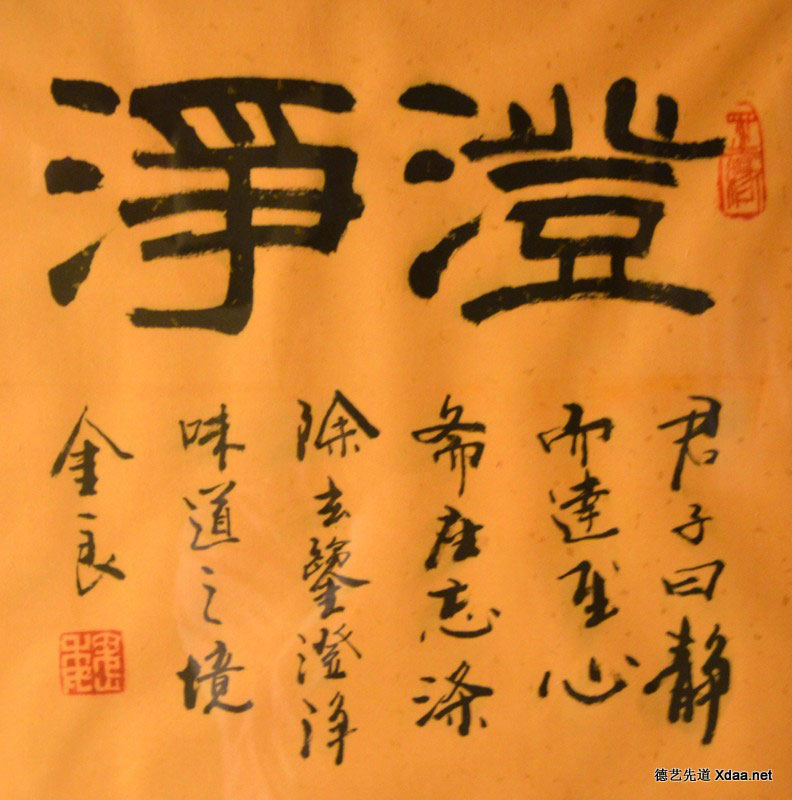 澄淨
君子曰静
而達心
斋座忘涤
除玄鑒澄净
味道之境
金良
德艺先道 Xdaa.net